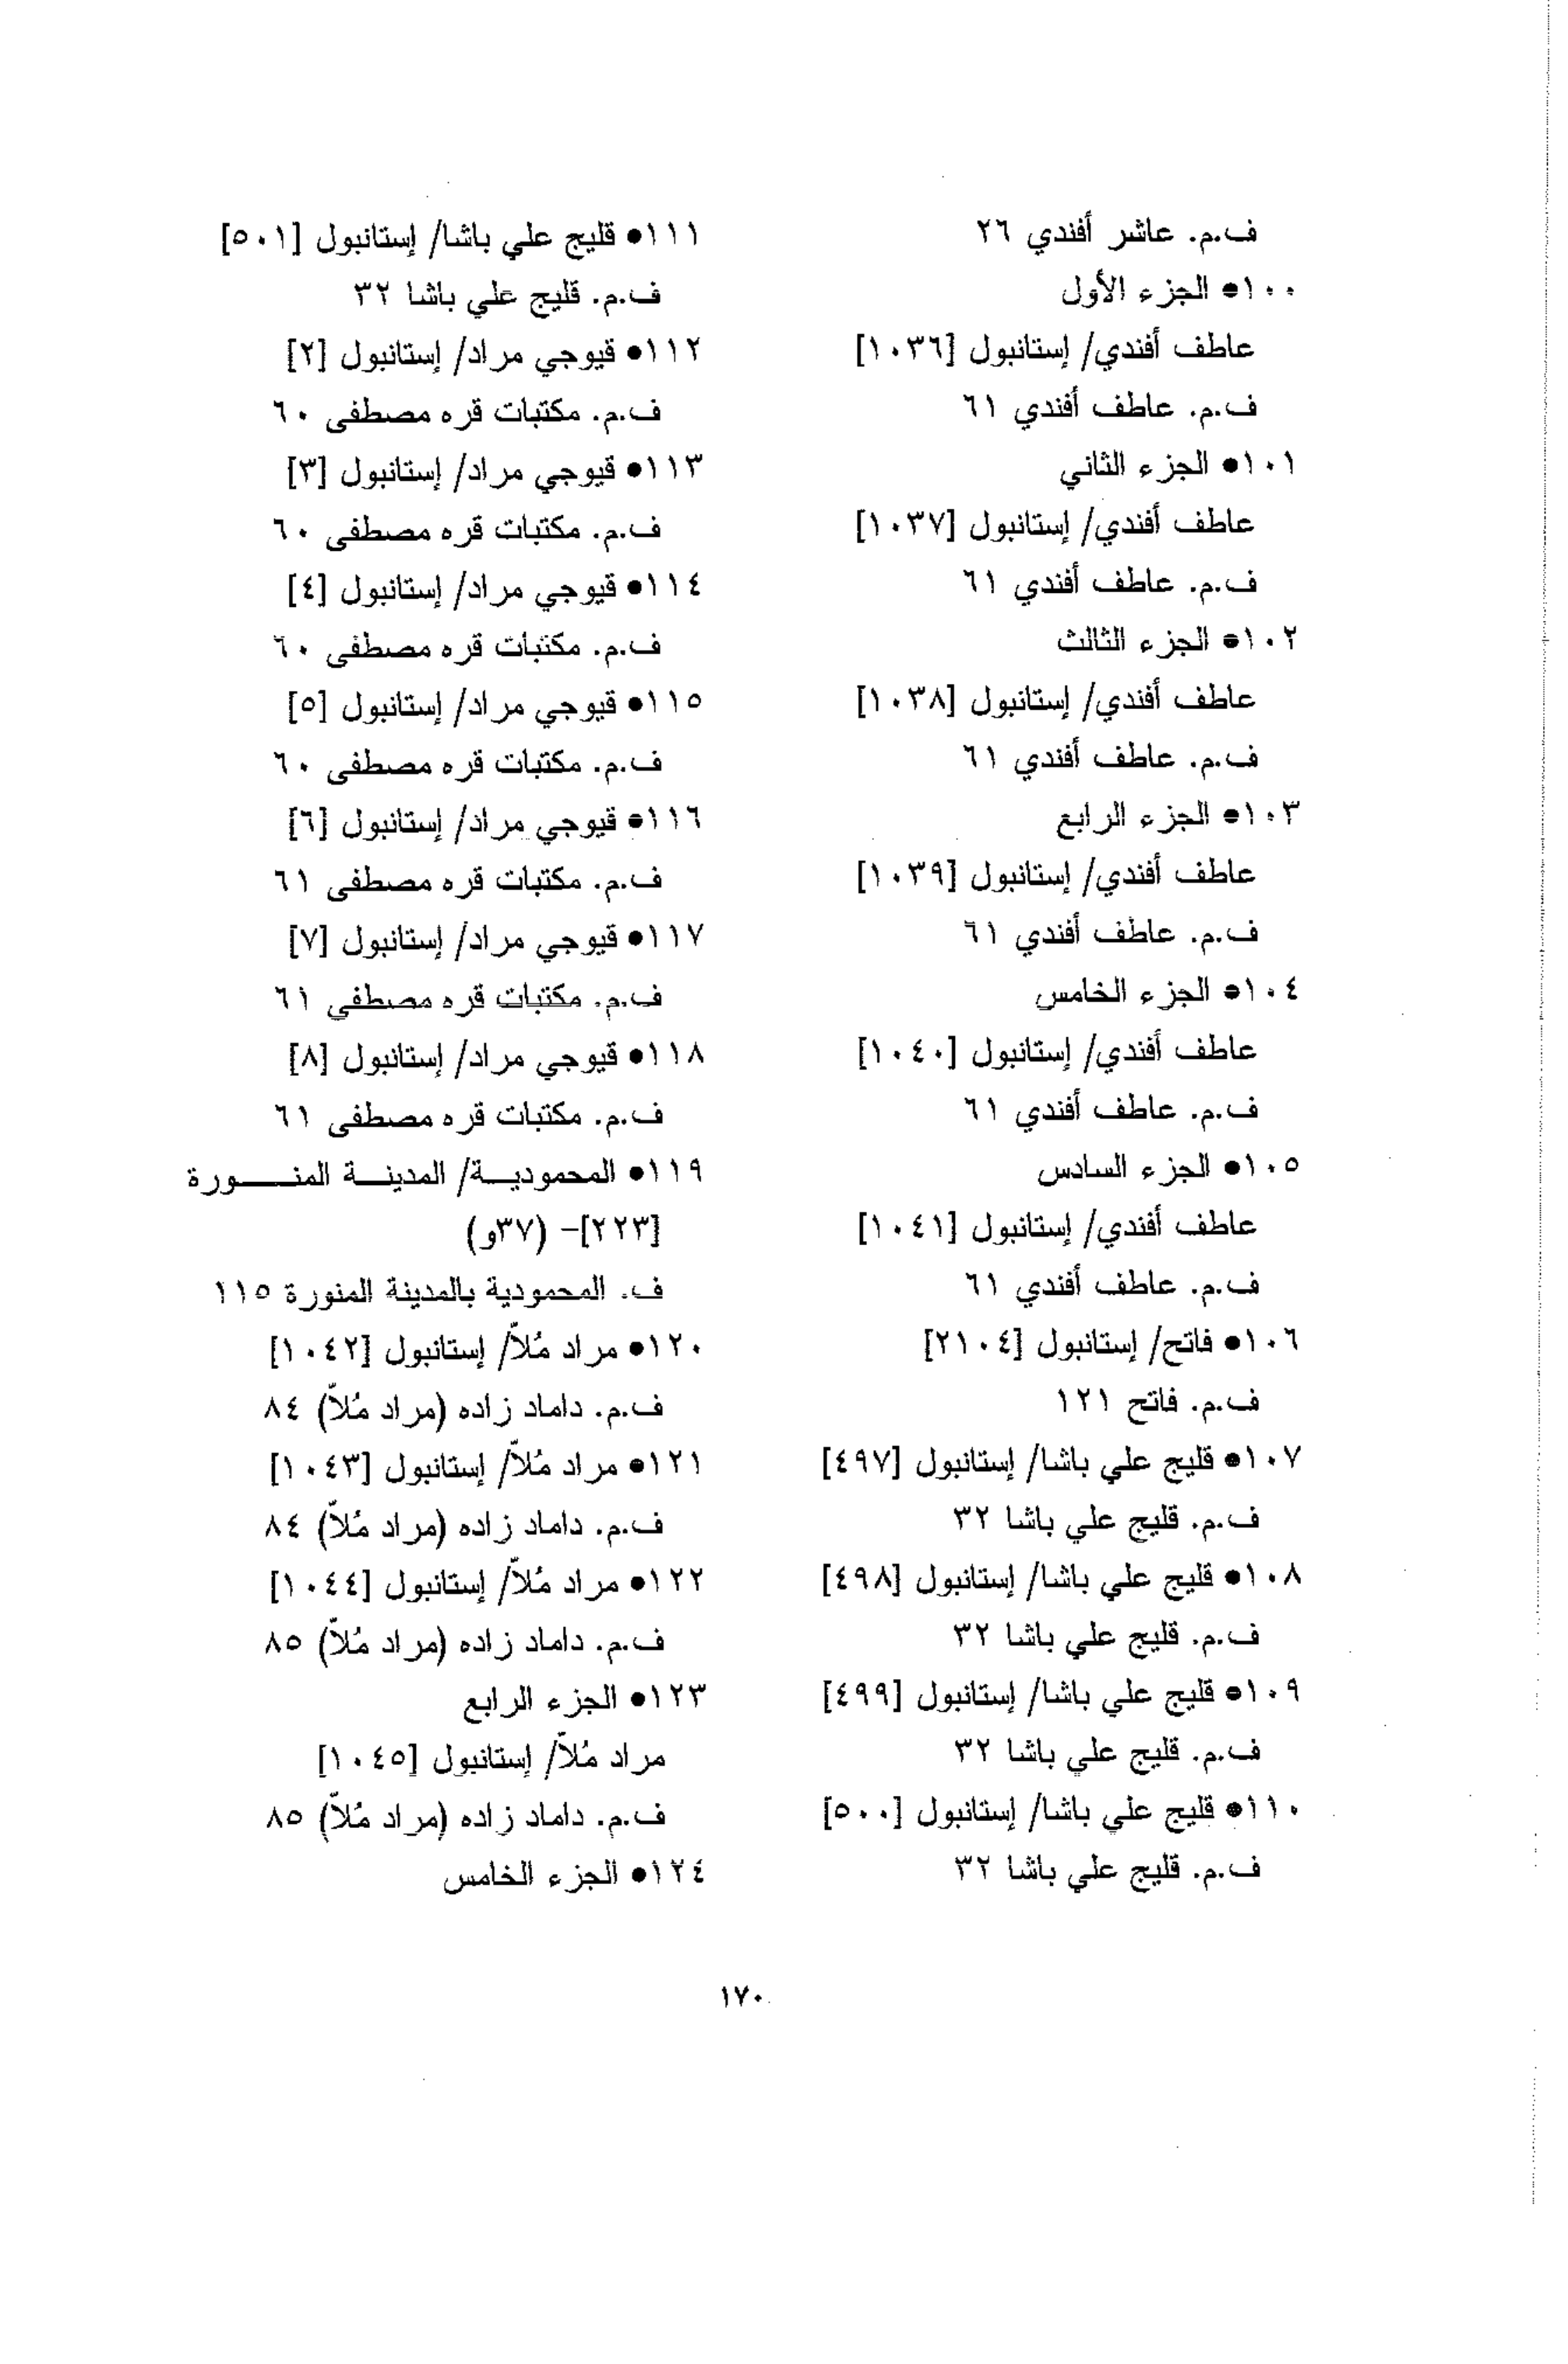 ف.م. عاشر أفندي ٢٦
١٠٠● الجزء الأول
عاطف أفندي/ إستانبول [١٠٣٦]
ف.م. عاطف أفندي ٦١
١٠١● الجزء الثاني
عاطف أفندي/ إستانبول [١٠٣٧]
ف.م. عاطف أفندي ٦١
١٠٢● الجزء الثالث
عاطف أفندي/ إستانبول [١٠٣٨]
ف.م. عاطف أفندي ٦١
١٠٣● الجزء الرابع
عاطف أفندي/ إستانبول [١٠٣٩]
ف.م. عاطف أفندي ٦١
١٠٤● الجزء الخامس
عاطف أفندي/ إستانبول [١٠٤٠]
ف.م. عاطف أفندي ٦١
١٠٥● الجزء السادس
عاطف أفندي/ إستانبول [١٠٤١]
ف.م. عاطف أفندي ٦١
١٠٦● فاتح/ إستانبول [٢١٠٤]
ف.م. فاتح ١٢١
١٠٧● قليج علي باشا/ إستانبول [٤٩٧]
ف.م. قليج علي باشا ٣٢
١٠٨● قليج علي باشا/ إستانبول [٤٩٨]
ف.م. قليج علي باشا ٣٢
١٠٩● قليج علي باشا/ إستانبول [٤٩٩]
ف.م. قليج علي باشا ٣٢
١١٠● قليج علي باشا/ إستانبول [٥٠٠]
ف.م. قليج علي باشا ٣٢
١١١● قليج علي باشا/ إستانبول [٥٠١]
ف.م. قليج علي باشا ٣٢
١١٢● قيوجي مراد/ إستانبول [٢]
ف.م. مكتبات قره مصطفى ٦٠
١١٣● قيوجي مراد/ إستانبول [٣]
ف.م. مكتبات قره مصطفى ٦٠
١١٤● قيوجي مراد/ إستانبول [٤]
ف.م. مكتبات قره مصطفى ٦٠
١١٥● قيوجي مراد/ إستانبول [٥]
ف.م. مكتبات قره مصطفى ٦٠
١١٦● قيوجي مراد/ إستانبول [٦]
ف.م. مكتبات قره مصطفى ٦١
١١٧● قيوجي مراد/ إستانبول [٧]
ف.م. مكتبات قره مصطفى ٦١
١١٨● قيوجي مراد/ إستانبول [٨]
ف.م. مكتبات قره مصطفى ٦١
١١٩● المحموديـة/ المدينـة المنـــورة
[٢٢٣]– (٣٧و)
ف. المحمودية بالمدينة المنورة ١١٥
١٢٠● مراد مُلاّ/ إستانبول [١٠٤٢]
ف.م. داماد زاده (مراد مُلاّ) ٨٤
١٢١● مراد مُلاّ/ إستانبول [١٠٤٣]
ف.م. داماد زاده (مراد مُلاّ) ٨٤
١٢٢● مراد مُلاّ/ إستانبول [١٠٤٤]
ف.م. داماد زاده (مراد مُلاّ) ٨٥
١٢٣● الجزء الرابع
مراد مُلاّ/ إستانبول [١٠٤٥]
ف.م. داماد زاده (مراد مُلاّ) ٨٥
١٢٤● الجزء الخامس
١٧٠